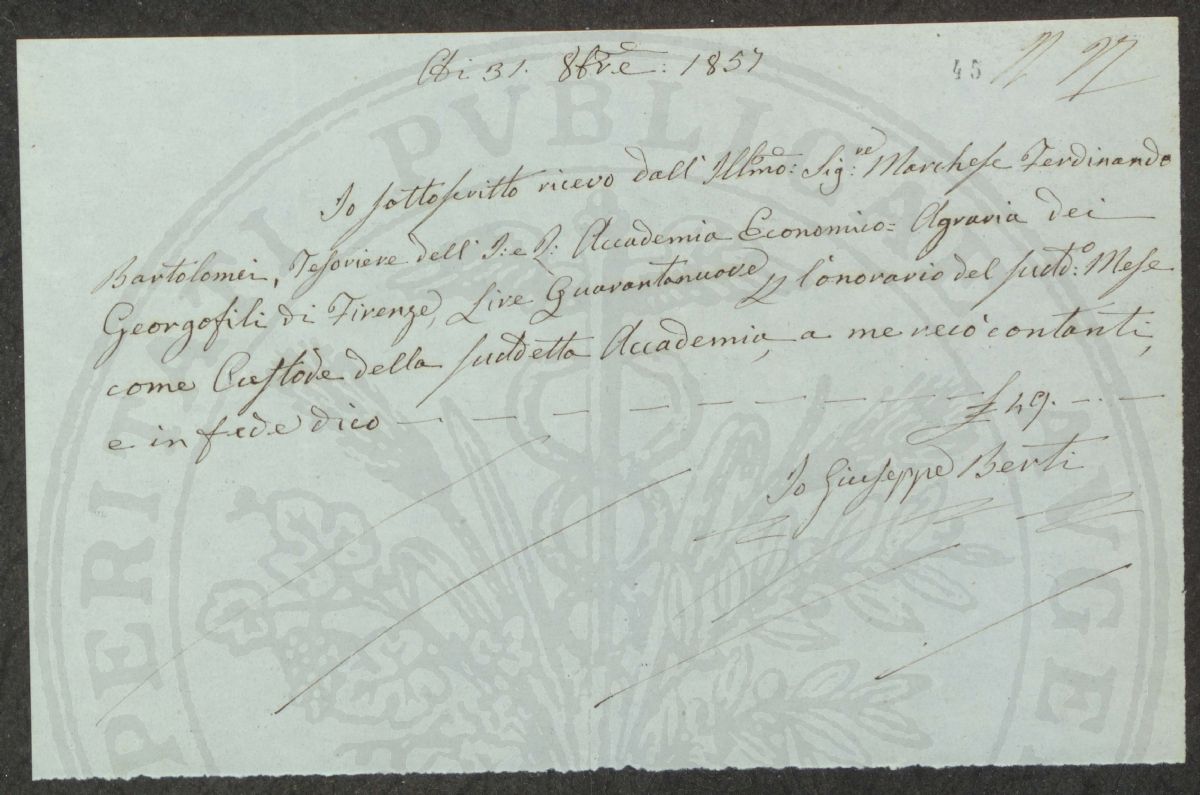 Adi 31. 8bre: 1857
45 N 27
Io sottoscritto ricevo dall' Illmo: Sig:re Marchese Ferdinando
Bartolomei, Tesoriere dell' I: e R: Accademia Economico= Agraria dei
Georgofili di Firenze, Lire Quarantanuove p l'onorario del sudd:o Mese
come Custode della suddetta Accademia, a me recò contanti,
e in fede dico — — — — — — — — — £ 49. — —
Io Giuseppe Berti
PROSPERITATI PVBLICAE AVGE